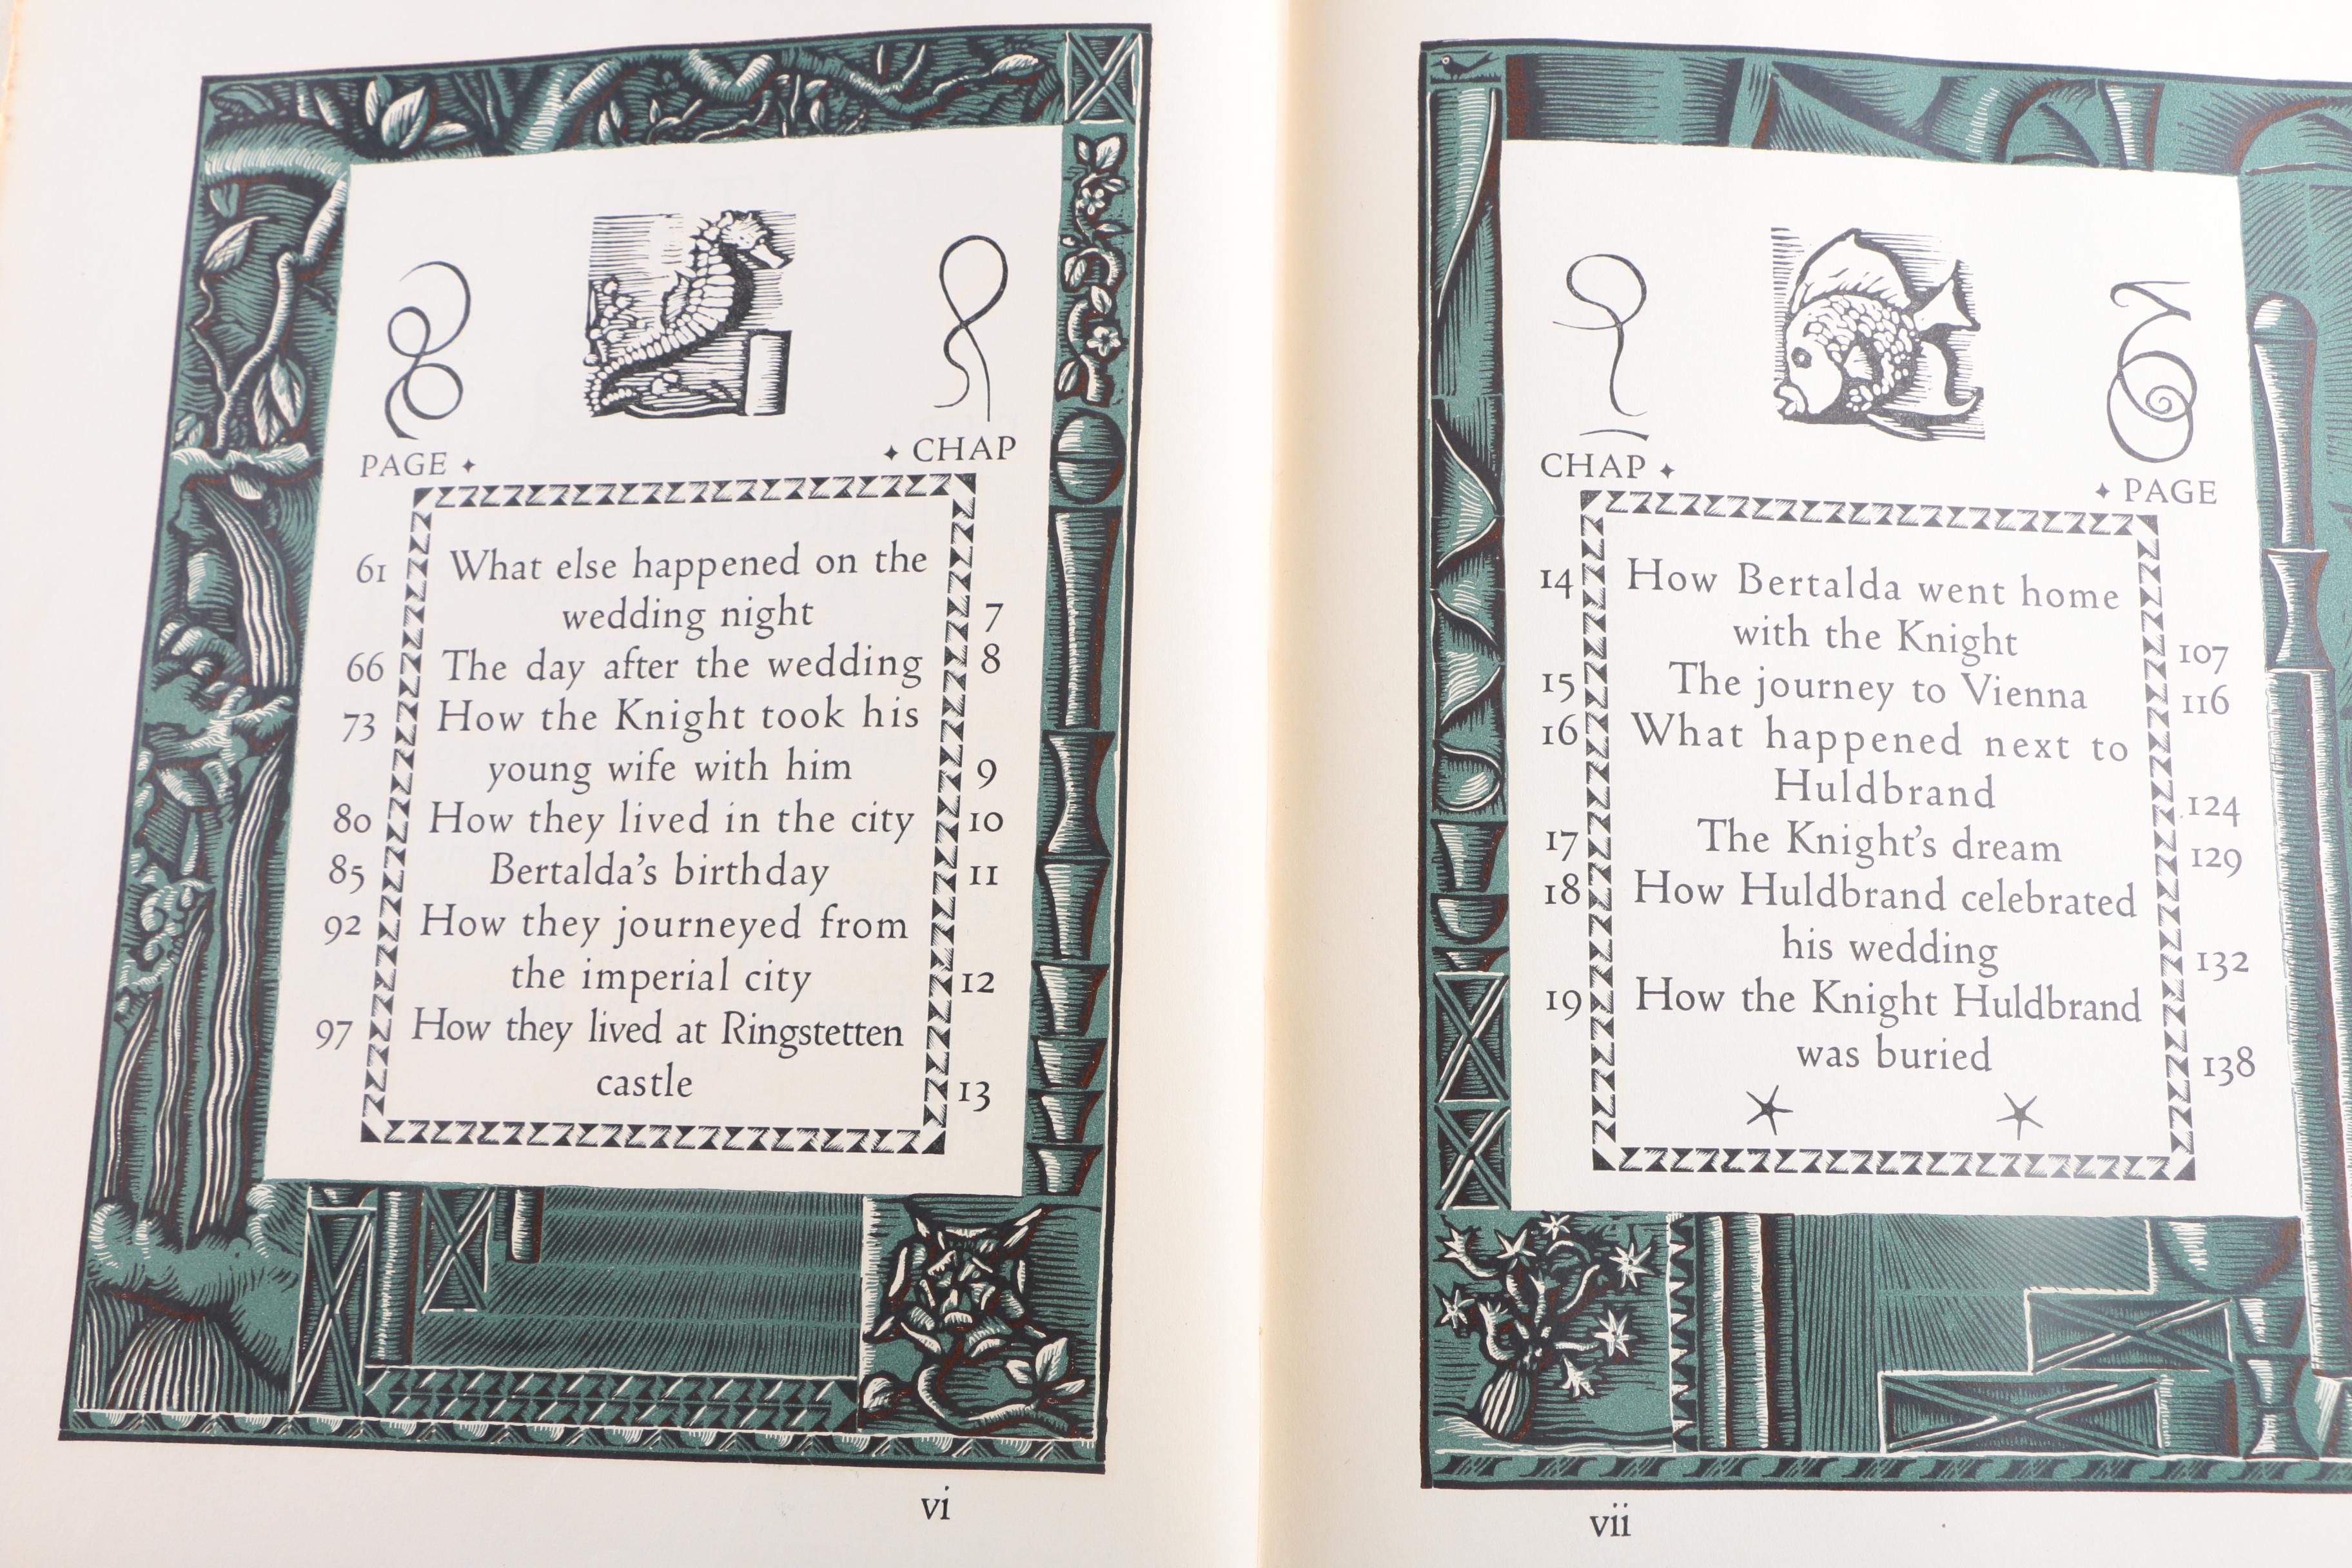 PAGE ✦ ✦ CHAP
61 What else happened on the
wedding night 7
66 The day after the wedding 8
73 How the Knight took his
young wife with him 9
80 How they lived in the city 10
85 Bertalda's birthday 11
92 How they journeyed from
the imperial city 12
97 How they lived at Ringstetten
castle 13
vi
CHAP ✦ ✦ PAGE
14 How Bertalda went home
with the Knight 107
15 The journey to Vienna 116
16 What happened next to
Huldbrand 124
17 The Knight's dream 129
18 How Huldbrand celebrated
his wedding 132
19 How the Knight Huldbrand
was buried 138
vii